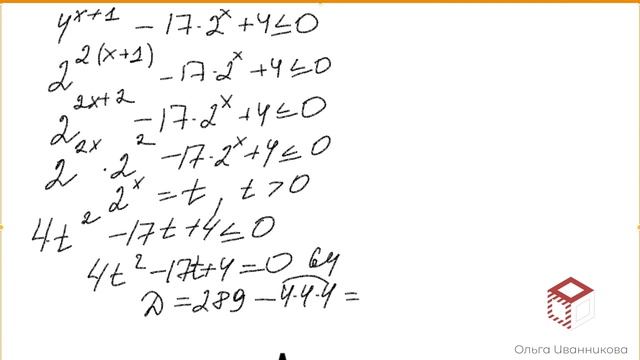 4^{x+1} - 17·2^x + 4 ≤ 0
2^{2(x+1)} - 17·2^x + 4 ≤ 0
2^{2x+2} - 17·2^x + 4 ≤ 0
2^{2x} · 2^2 - 17·2^x + 4 ≤ 0
2^x = t, t > 0
4t^2 - 17t + 4 ≤ 0
4t^2 - 17t + 4 = 0
64
D = 289 - 4·4·4 =
Ольга Иванникова